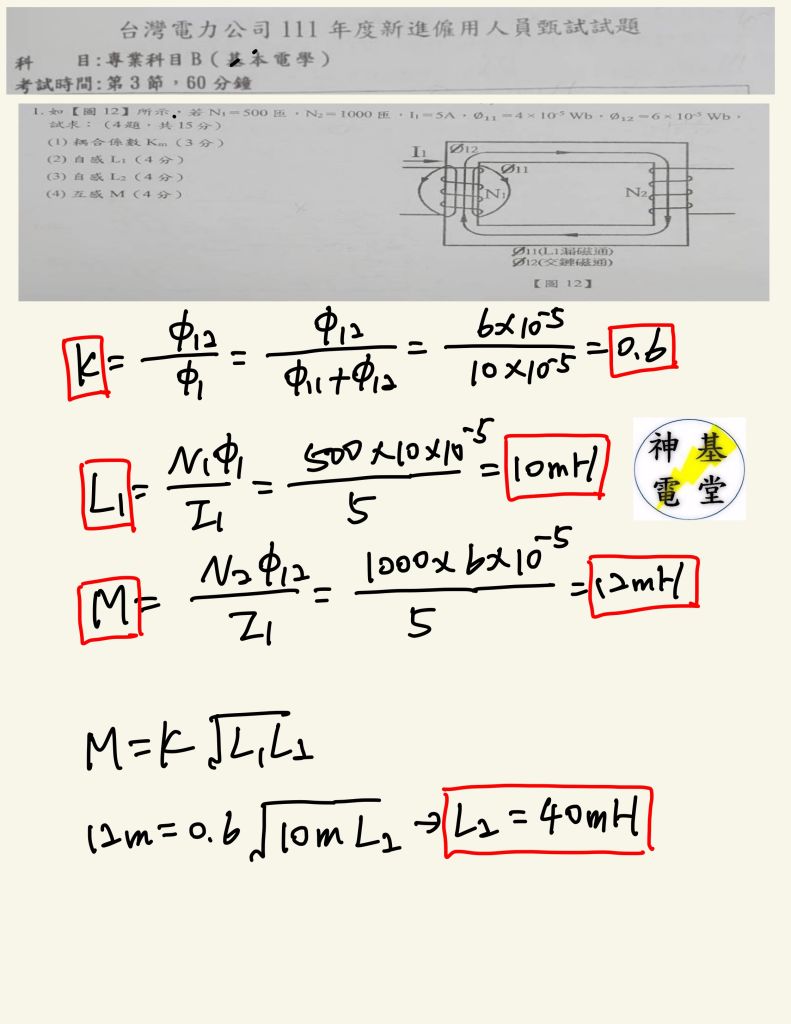 台灣電力公司 111 年度新進僱用人員甄試試題
科 目:專業科目B(基本電學)
考試時間:第3節,60分鐘
1. 如【圖 12】所示,若 N₁=500 匝,N₂=1000 匝,I₁=5A,Ø₁₁=4×10⁻⁵ Wb,Ø₁₂=6×10⁻⁵ Wb,
試求:(4題,共15分)
(1) 耦合係數 Kₘ(3分)
(2) 自感 L₁(4分)
(3) 自感 L₂(4分)
(4) 互感 M(4分)
I₁
Ø12
Ø11
N₁
N₂
Ø11(L1漏磁通)
Ø12(交鏈磁通)
【圖 12】
K = ϕ₁₂/ϕ₁ = ϕ₁₂/(ϕ₁₁+ϕ₁₂) = 6×10⁻⁵/10×10⁻⁵ = 0.6
L₁ = N₁ϕ₁/I₁ = 500×10×10⁻⁵/5 = 10mH
神基
電堂
M = N₂ϕ₁₂/I₁ = 1000×6×10⁻⁵/5 = 12mH
M=K√L₁L₂
12m=0.6√10m L₂ → L₂=40mH